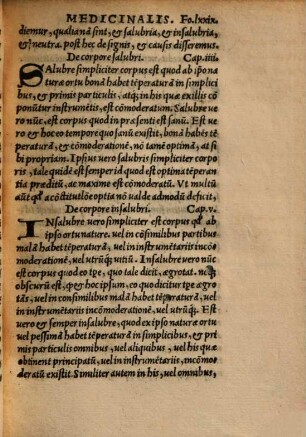 MEDICINALIS. Fo.lxxix.
diemur, qualia nã sint, & salubria, & insalubria,
& neutra. post hec de signis, & causis disseremus.
De corpore salubri. Cap.iiii.
SAlubre simpliciter corpus est quod ab ipso na
tura ortu bonã habet tẽperatura in simplici
bus, & primis particulis, atq; in his quæ exillis cõ
ponũtur instrumẽtis, est cõmoderatum. Salubre ve
ro nũc, est corpus quod in præsenti est sanũ. Est ve
ro & hoc eo tempore quo sanũ existit, bona habẽs tẽ
peraturã, & cõmoderationẽ, nõ tamẽ optimã, at si
bi propriam. Ipsius vero salubris simpliciter corpo
ris, tale quidẽ est semper id quod est optima tẽperan
tia præditũ, ac maxime est cõmoderatũ. Vt multũ
aũt qđ a cõstitutiõe optia nõ valde admodũ deficit,
De corpore insalubri. Cap.v.
INsalubre vero simpliciter est corpus qđ ab
ipso ortu nature. vel in cõsimilibus partibus
malã habet tẽperaturã, vel in instrumẽtariis incõ
moderationẽ, vel utrũq; vitiũ. Insalubre vero nũc
est corpus quod eo tpe, quo tale dicit, ægrotat. neq;
obscurũ est, ꝙ & hoc ipsum, co quod dicitur ægro
tãs, vel in consimilibus malã habet tẽperaturã, vel
in instrumẽtariis incõmoderationẽ, vel utrũq;. Est
vero & semper insalubre, quod ex ipso natura ortu
vel pessimã habet tẽperatura in simplicibus, & pri
mis particulis omnibus, vel aliquibus, vel his quæ
obtinent principatũ, vel in instrumẽtariis, incõmo
deratũ existit Similiter autem in his, vel omnibus,